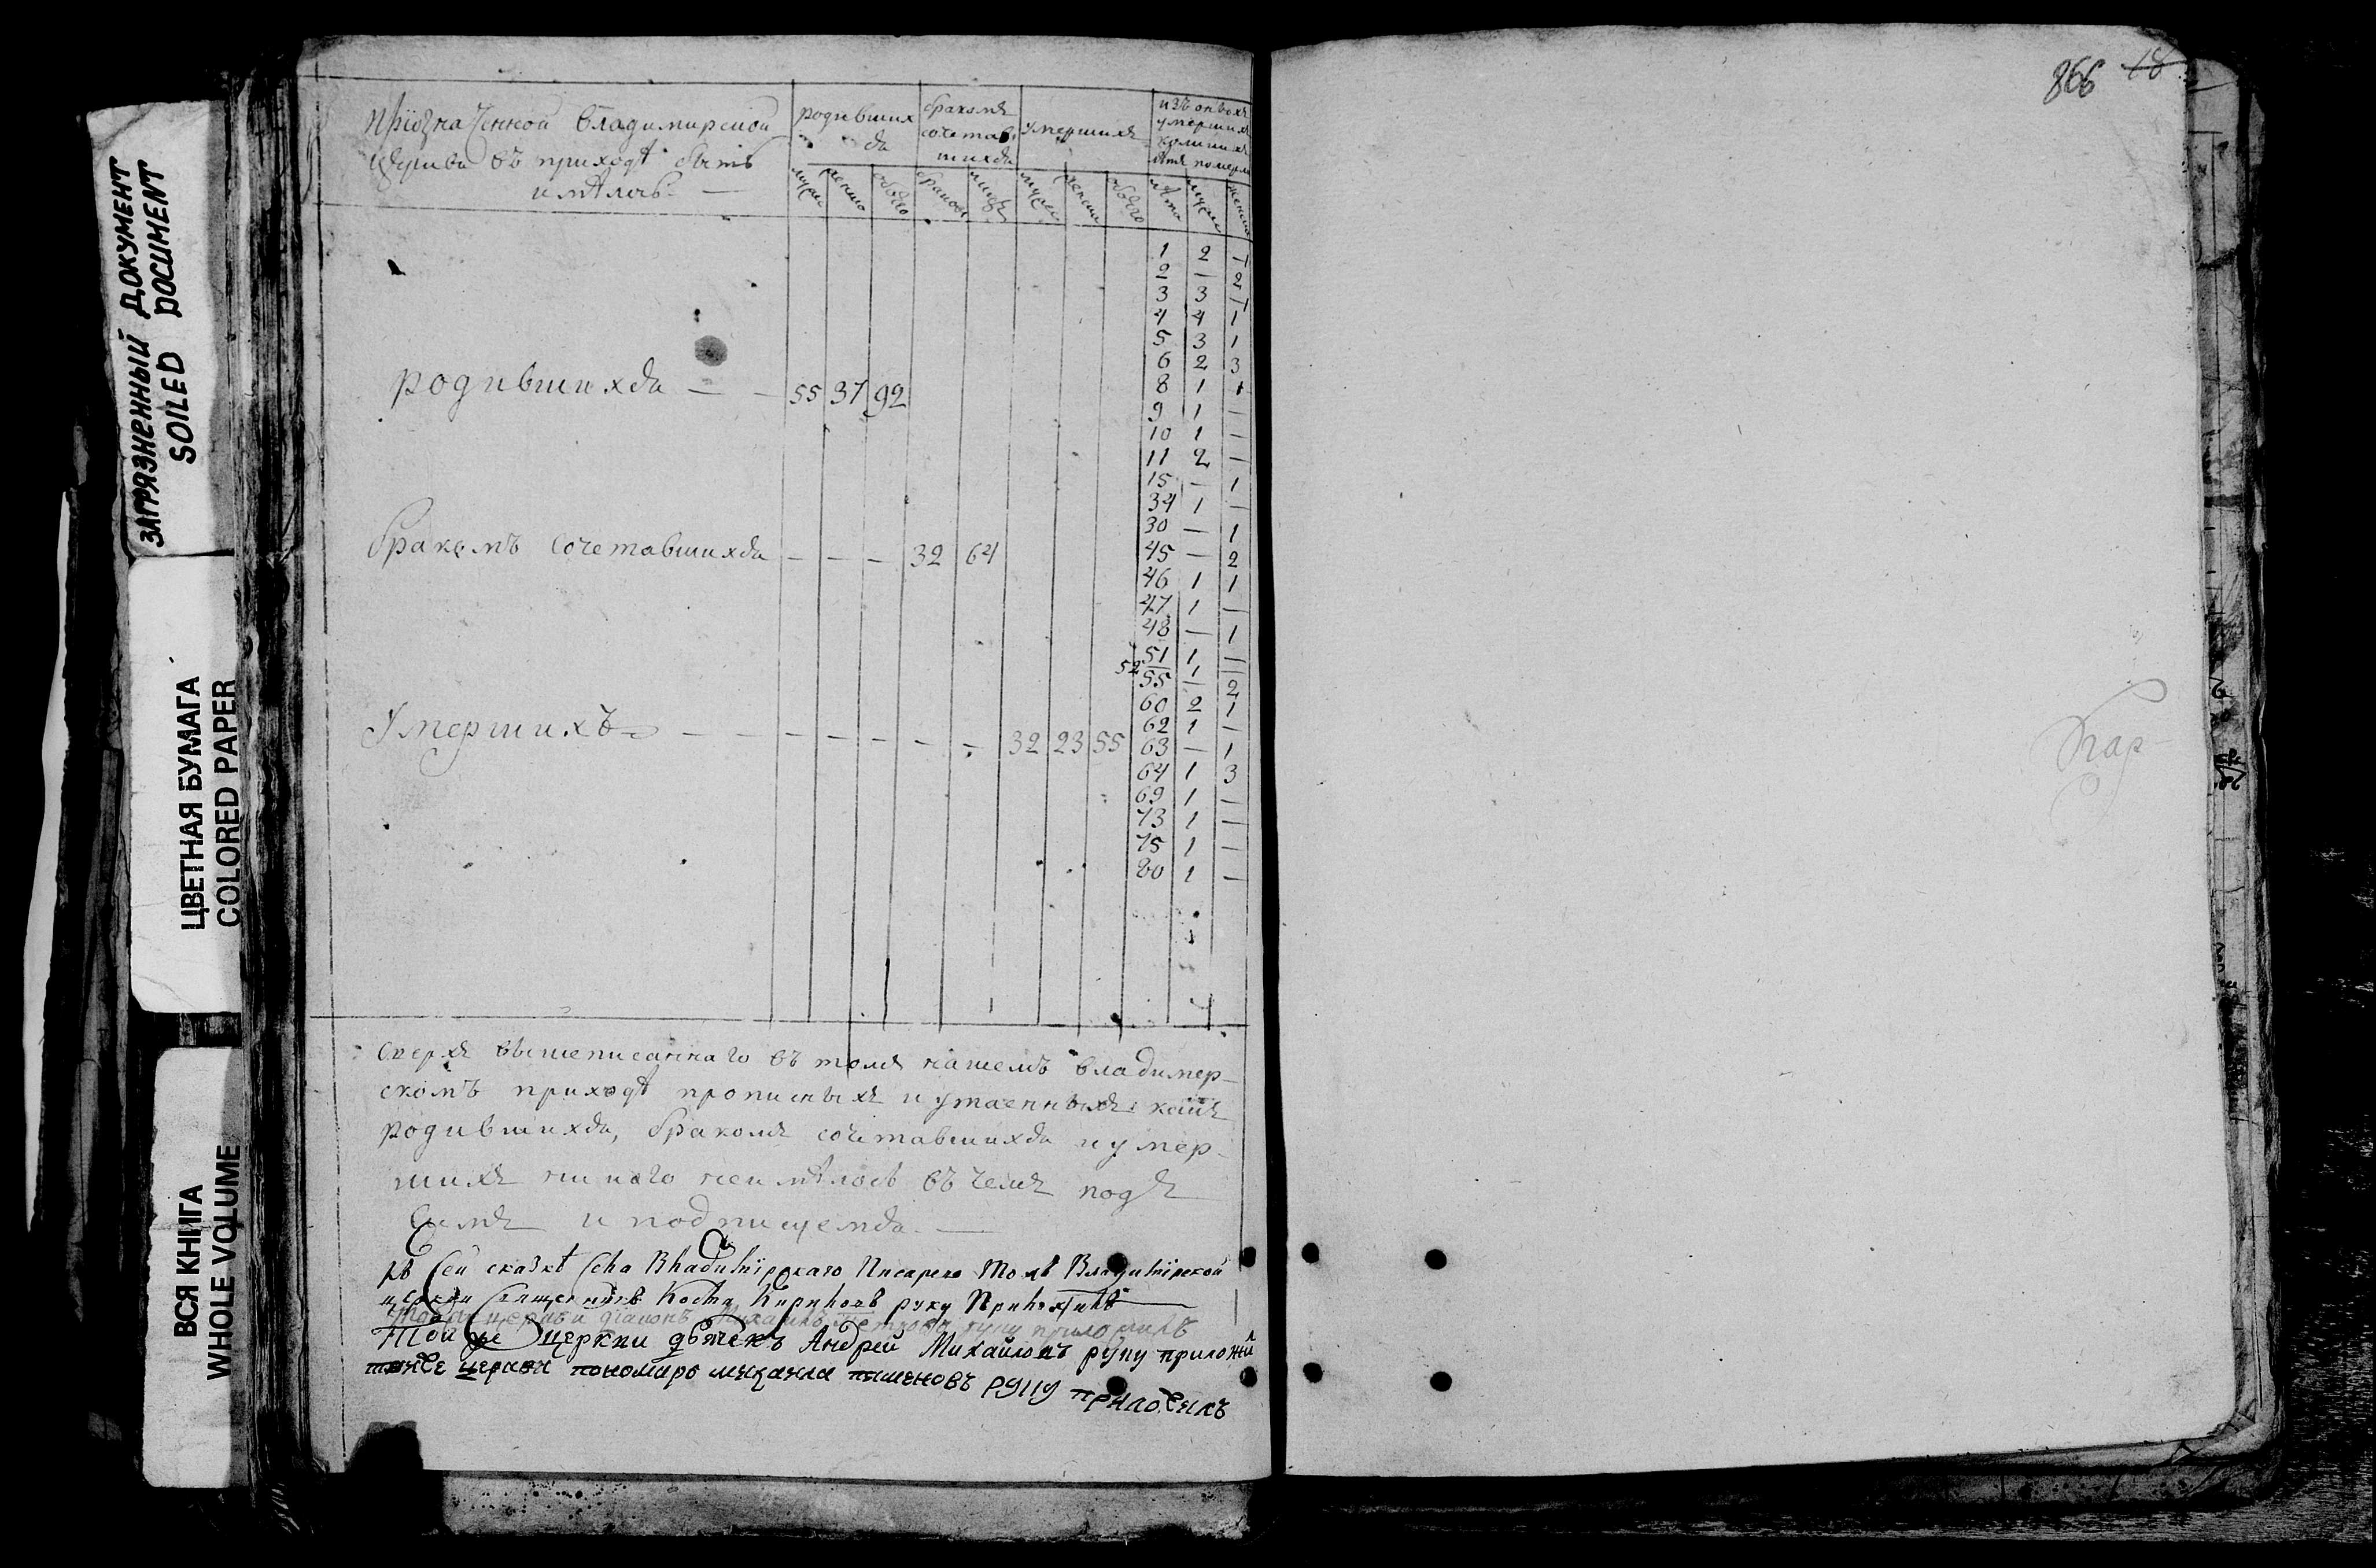 ЗАГРЯЗНЕННЫЙ ДОКУМЕНТ
SOILED DOCUMENT
ЦВЕТНАЯ БУМАГА
COLORED PAPER
ВСЯ КНИГА
WHOLE VOLUME
866 18
Приозначенной владимирской
церкви въ приходѣ быть
имѣлось
родивших
ся
бракомъ
сочетав
шихся
умершихъ
изъ оныхъ
умершихъ
коликихъ
лѣтъ померли
муска женска обоего браковъ лицъ муска женска обоего лѣта муска женска
1 2 –
2 – 2
3 3 –
4 4 1
5 3 1
6 2 3
8 1 1
родившихся — — 55 37 92
9 1 –
10 1 –
11 2 –
15 – 1
34 1 –
30 – 1
бракомъ сочетавшихся – – – 32 64
45 – 2
46 1 1
47 1 –
48 – 1
51 1 –
52 1 –
55 – 2
60 2 1
62 1 –
умершихъ – – – – – – – 32 23 55
63 – 1
64 1 3
69 1 –
73 1 –
75 1 –
80 1 –
сверхъ вышеписаннаго въ томъ нашемъ владимер-
скомъ приходѣ прописныхъ и утаенныхъ какъ
родившихся, бракомъ сочетавшихся и умер-
шихъ никого неимѣлось въ чемъ подъ
симъ и подписуемся
къ сей сказкѣ села Владимїрскаго Писарево тожъ Владимїрской
церкви священникъ Косма Кириловъ руку Приложилъ
тояже церкви дїаконъ руку приложилъ
Той же церкви дьячекъ Андрей Михайловъ руку приложил
тояже церкви пономарь михаила руку приложилъ